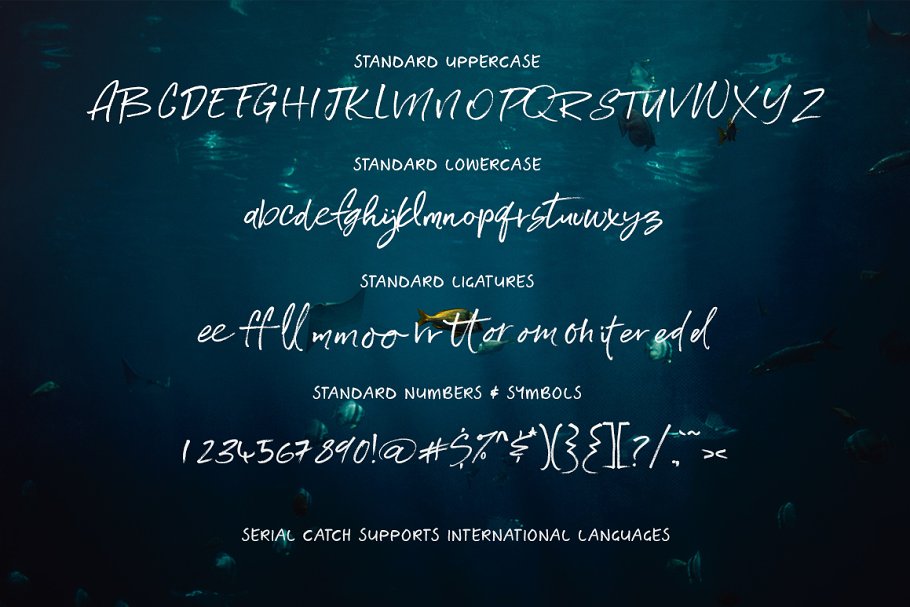 STANDARD UPPERCASE
ABCDEFGHIJKLMNOPQRSTUVWXYZ
STANDARD LOWERCASE
abcdefghijklmnopqrstuvwxyz
STANDARD LIGATURES
ee ff ll mm oo rr tt or om oh it er ed d
STANDARD NUMBERS & SYMBOLS
1234567890!@#$%^&*)(}{][?/
SERIAL CATCH SUPPORTS INTERNATIONAL LANGUAGES